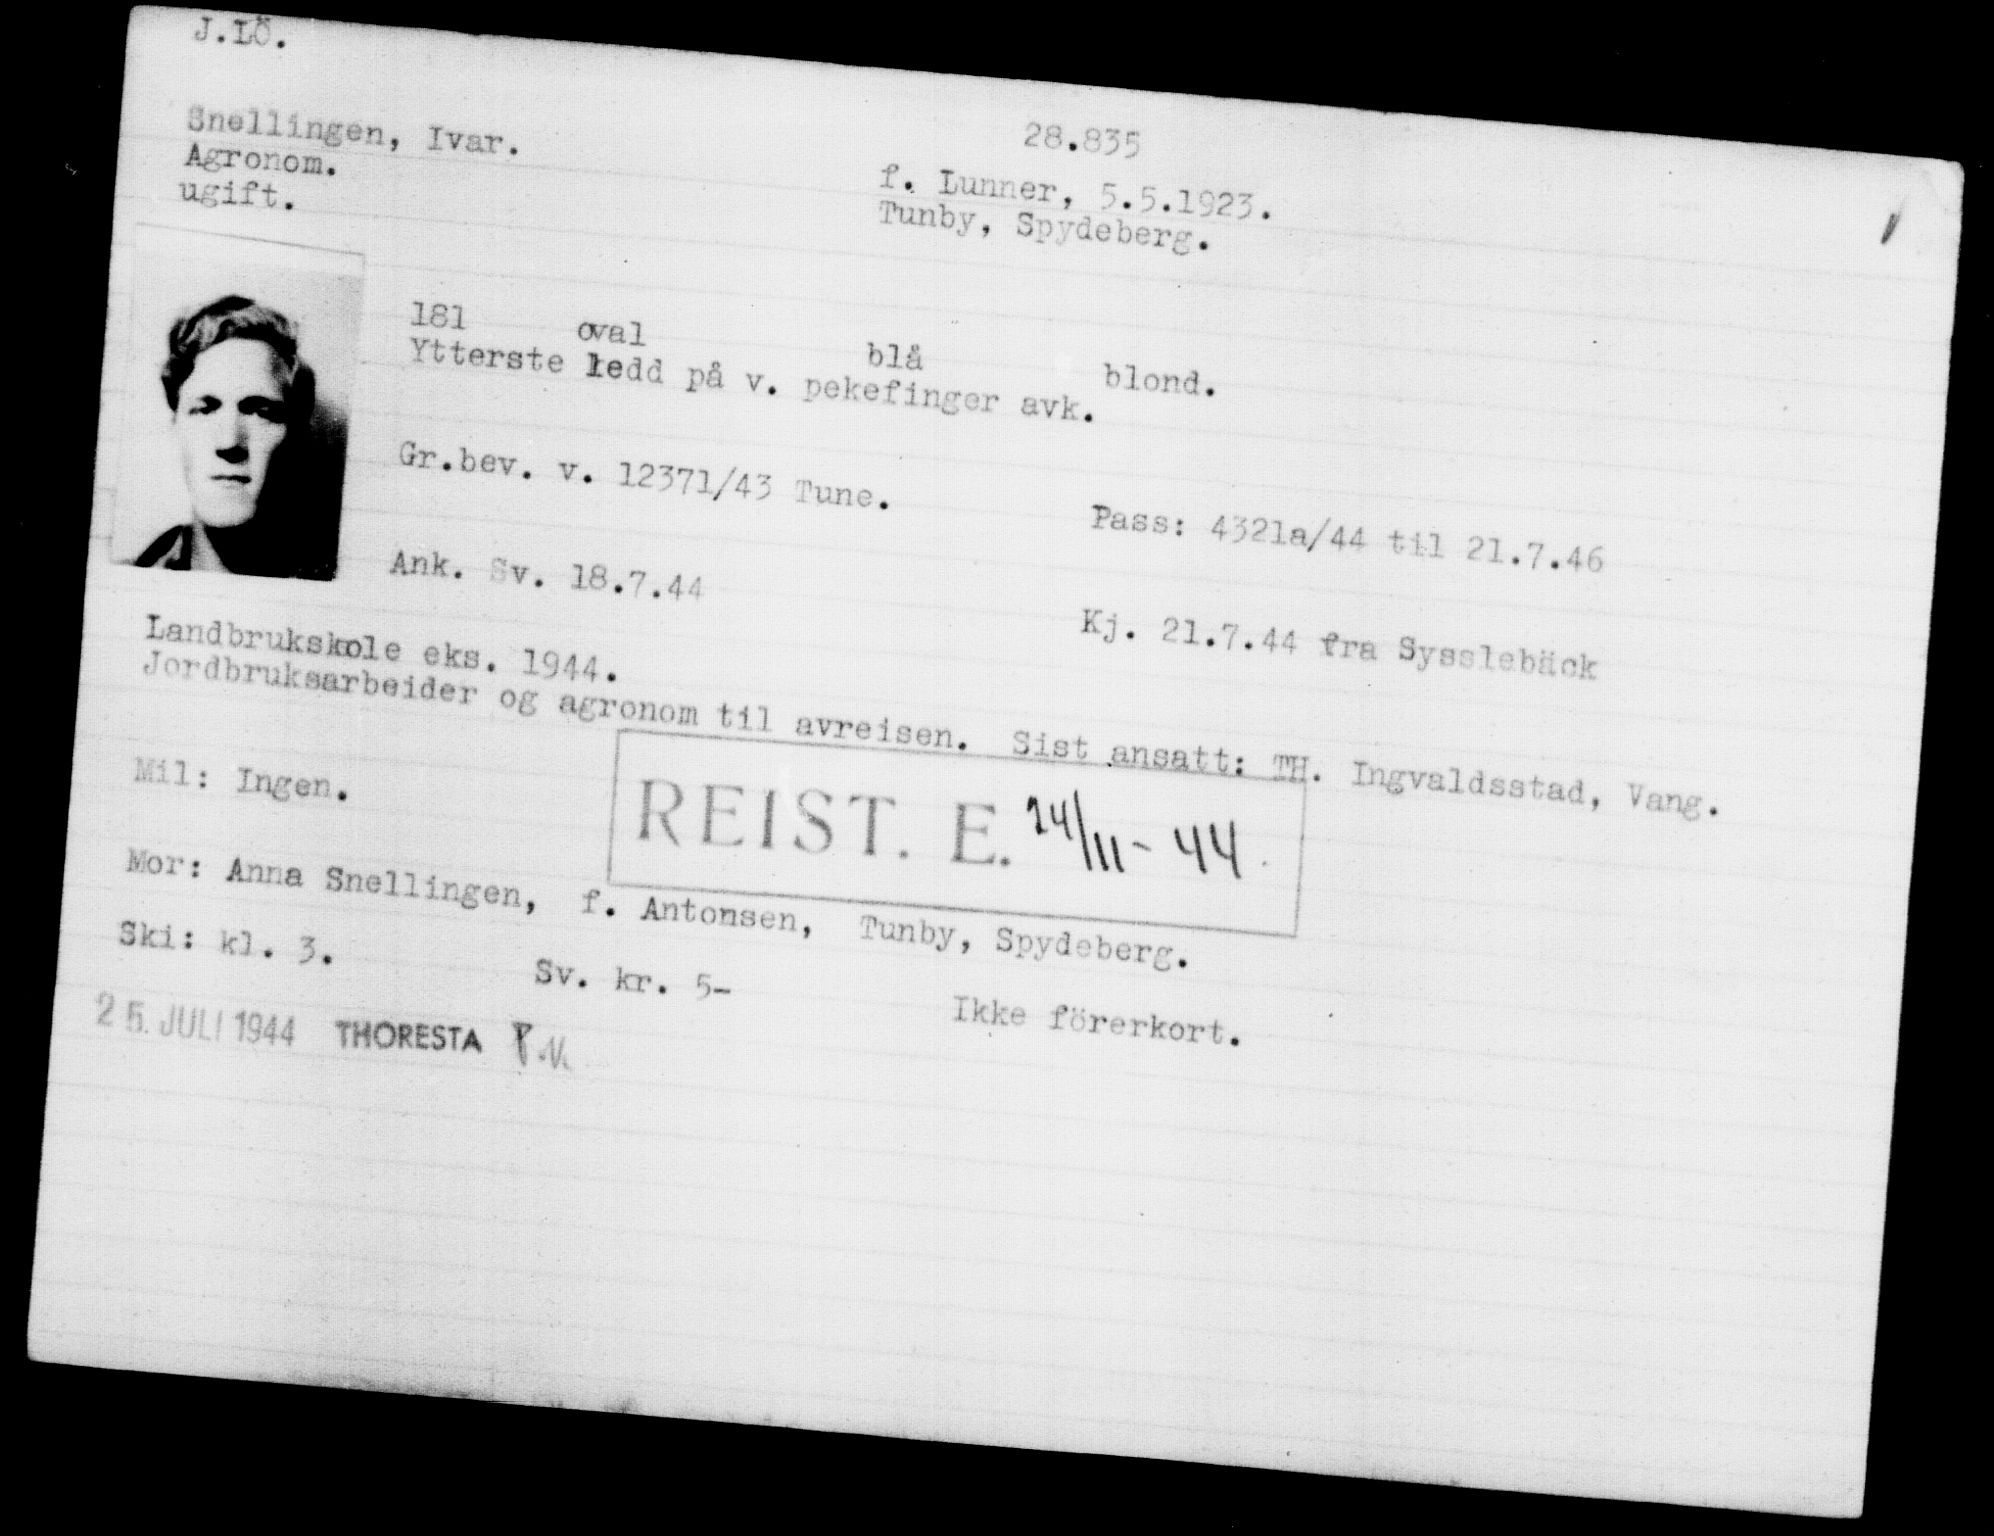 J.LÖ.
Snellingen, Ivar.
28.835
Agronom.
f. Lunner, 5.5.1923.
ugift.
Tunby, Spydeberg.
181 oval blå blond.
Ytterste ledd på v. pekefinger avk.
Gr.bev. v. 12371/43 Tune.
Pass: 4321a/44 til 21.7.46
Ank. Sv. 18.7.44
Kj. 21.7.44 fra Sysslebäck
Landbrukskole eks. 1944.
Jordbruksarbeider og agronom til avreisen. Sist ansatt: TH. Ingvaldsstad, Vang.
Mil: Ingen.
REIST. E. 24/11-44.
Mor: Anna Snellingen, f. Antonsen, Tunby, Spydeberg.
Ski: kl. 3. Sv. kr. 5- Ikke förerkort.
25. JULI 1944 THORESTA